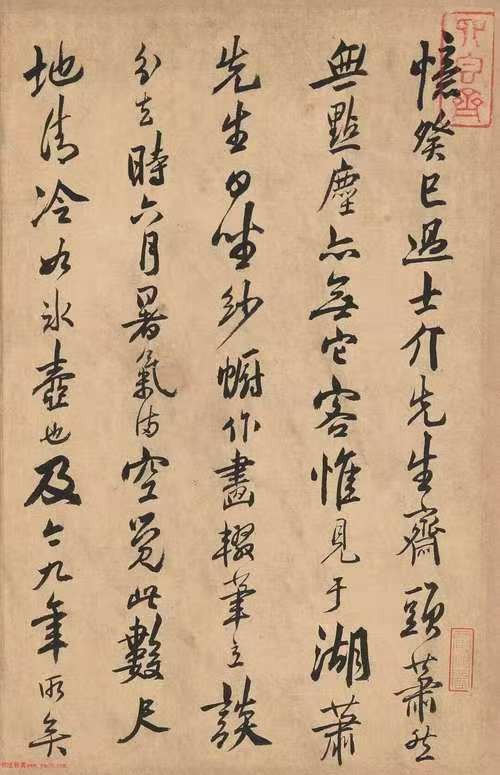 憶癸巳過士介先生齋頭蕭然
無點塵亦無它客惟見于湖蕭
先生日坐紗幮作畫輟筆立談
分去時六月暑氣滿空覺此數尺
地清冷如冰壺也及今九年所矣